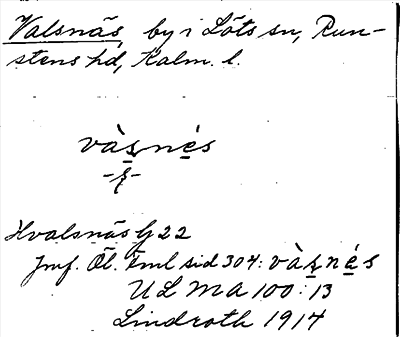 Valsnäs by i Löts sn, Run-
stens hd, Kalm. l.
vàs̱nе̱́s
-ş-
Hvalsnäs G 22
Jmf. Öl. Eml sid 304: vàs̱nе̱́s
ULMA 100:13
Lindroth 1914